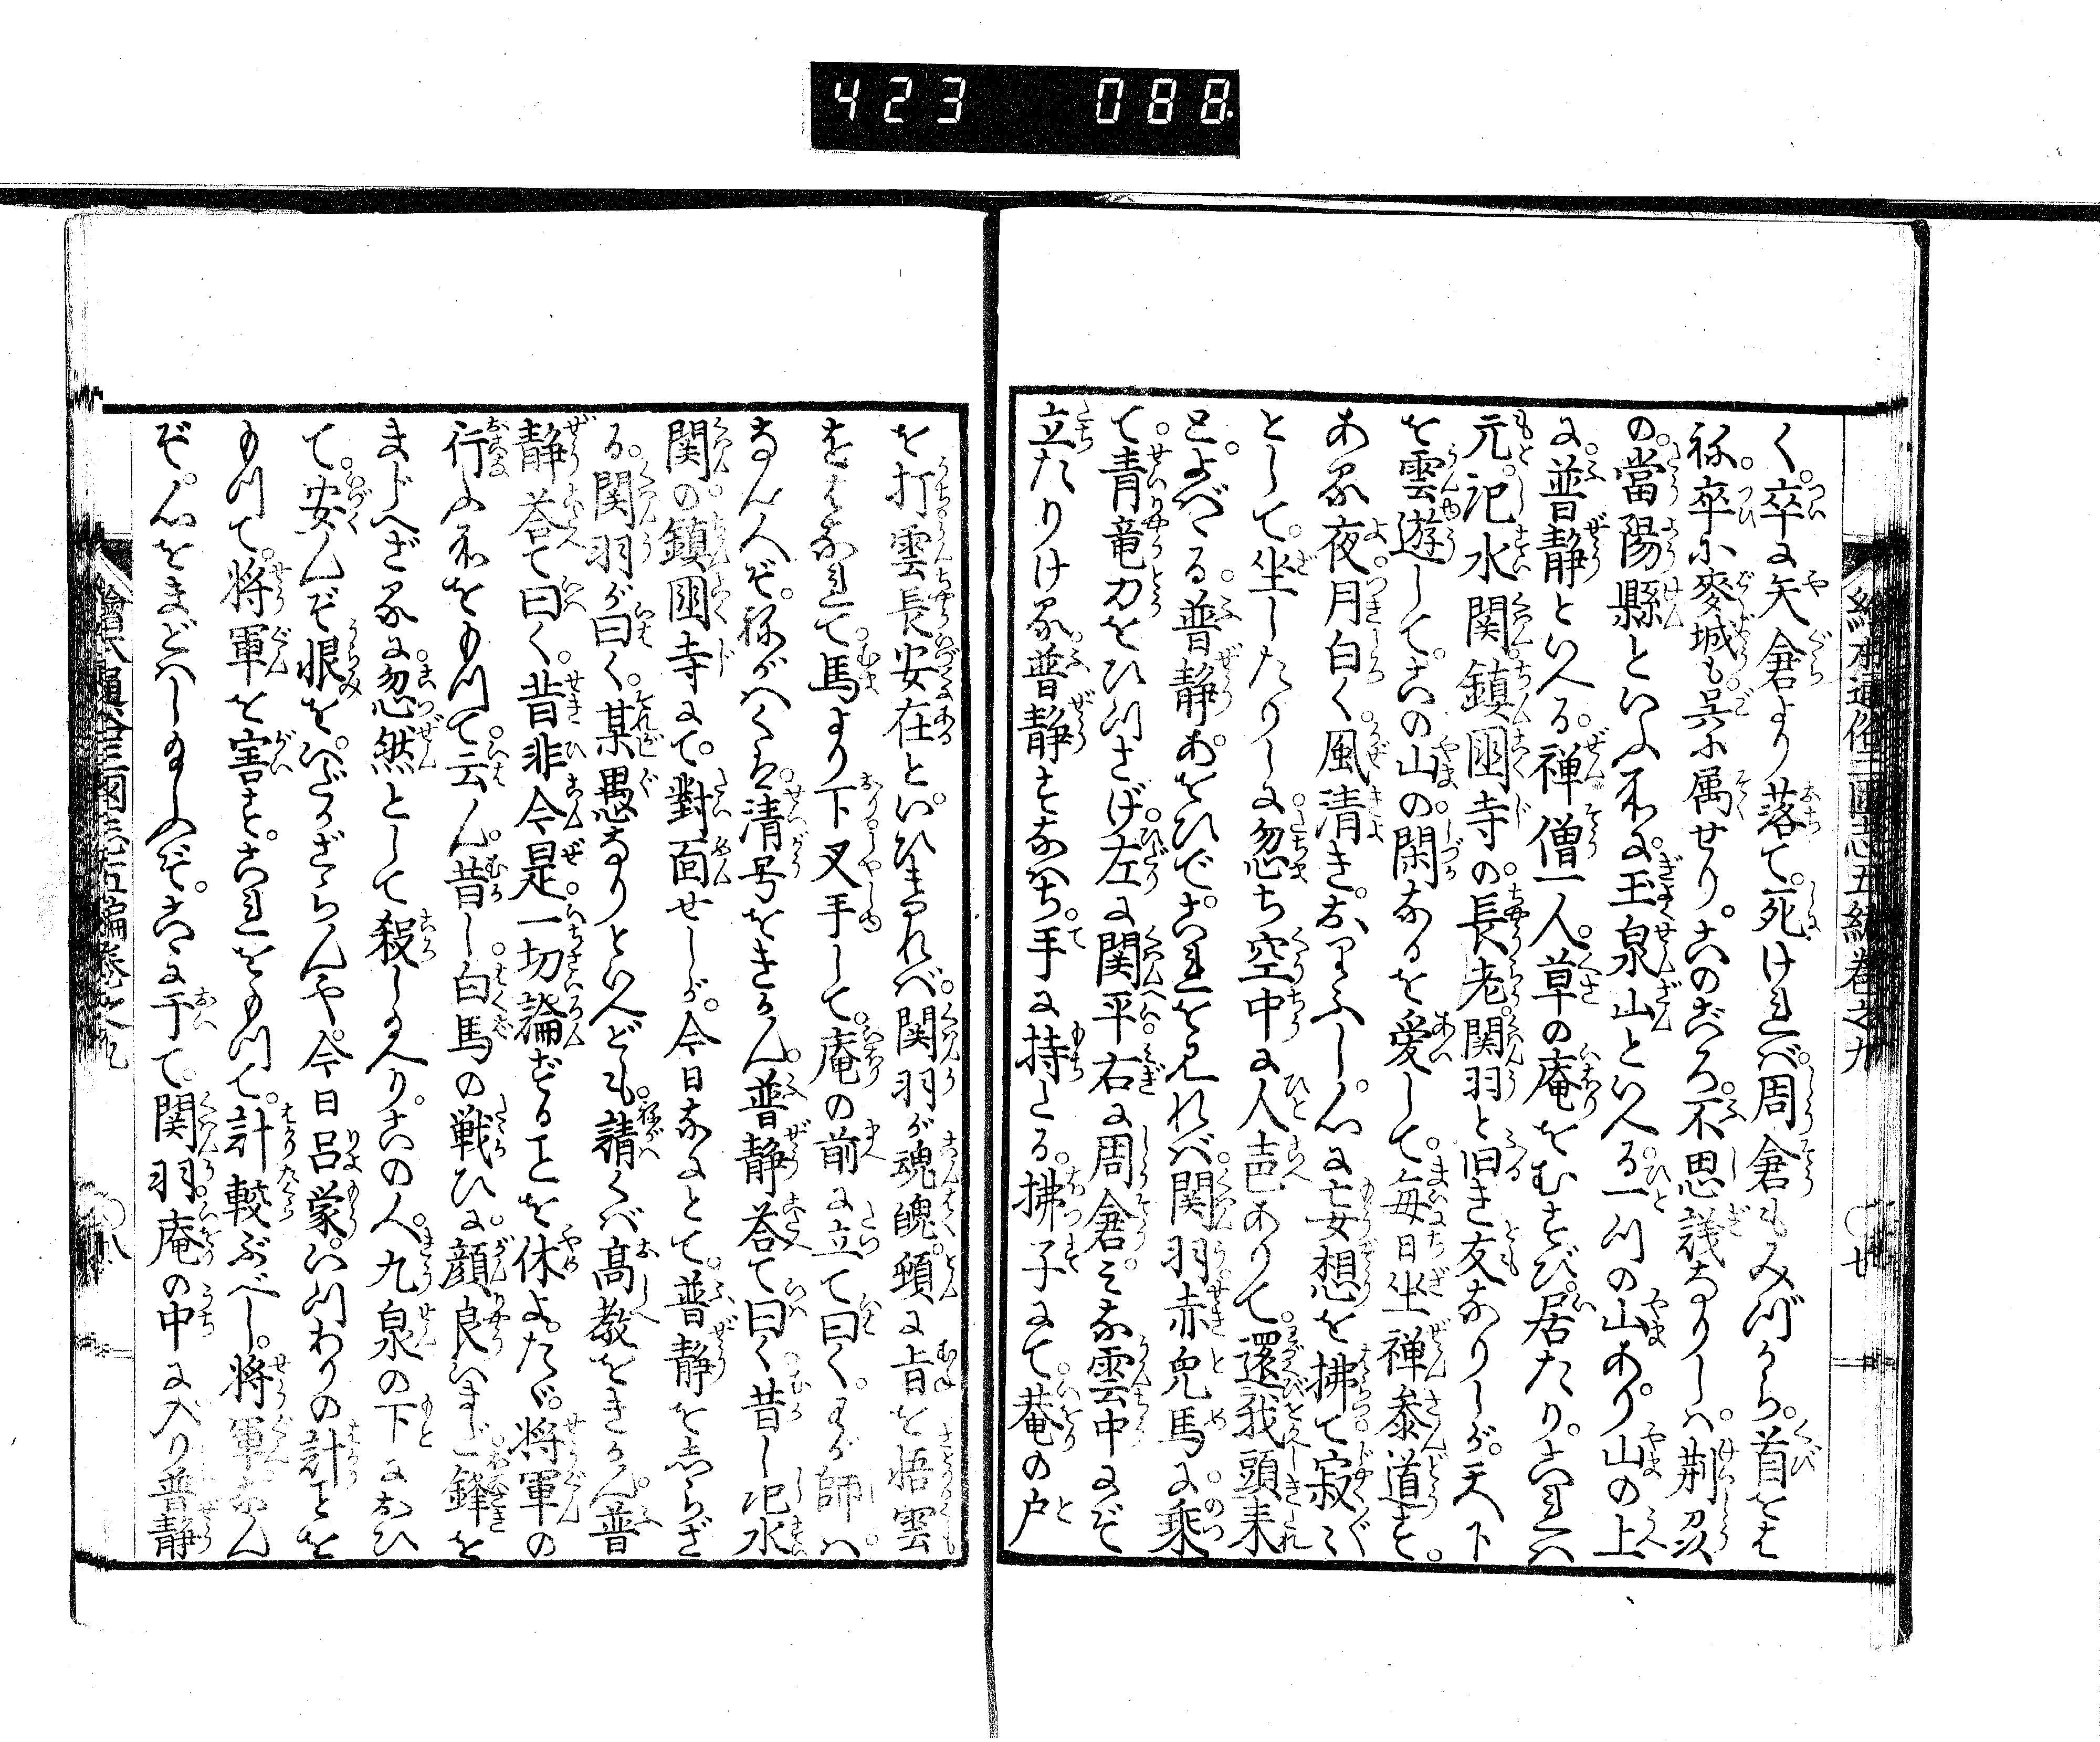 423 088
繪本通俗三國志五編巻之九 〇廿
く。卒に矢倉より落て。死ければ。周倉もみづから。首をは
ね。卒に麥城も呉に属せり。このころ不思議なりしハ。荊州
の當陽縣といふ所に。玉泉山といへる。一ツの山あり。山の上
に。普静といへる。禅僧一人。草の庵をむすび。居たり。これハ
元。汜水関鎮国寺の。長老。関羽と旧き友なりしが。天下
を雲遊して。この山の。閑なるを愛して。毎日坐禅參道す。
ある夜。月白く。風清き。おりふし。心に妄想を拂て。寂々
として。坐したりしに。忽ち空中に人声ありて。還我頭来
と。よべる。普静。あをひで。これを見れば。関羽。赤兎馬に乗
て。青竜刀をひつさげ。左に関平。右に周倉。みな雲中にぞ
立たりける。普静すなハち。手に持たる。拂子にて。菴の戸
を打。雲長安在と。いひければ。関羽が魂魄。頓に旨を悟。雲
をはなれて。馬より下。叉手して。庵の前に立て曰く。わが師ハ。
なん人ぞ。ねがハくは。清号をきかん。普静荅て曰く。昔し汜水
関の。鎮国寺にて。對面せしが。今日なにとて。普静をしらざ
る。関羽が曰く。某愚なりといへども。請くバ。高教をきかん。普
静荅て曰く。昔非今是。一切論ずることを休よ。たゞ。将軍の
行ふ所をもつて云ん。昔し白馬の戦ひに。顔良いまだ鋒を
まじへざるに。忽然として殺し給へり。この人。九泉の下におひ
て。安んぞ恨を。いだかざらんや。今日呂蒙。いつわりの計ことを
もつて。将軍を害す。これをもつて。計較ぶべし。将軍なん
ぞ。心をまどハし給ふぞ。こゝに于て。関羽。庵の中に入り普静
繪本通俗三國志五編巻之九 〇八